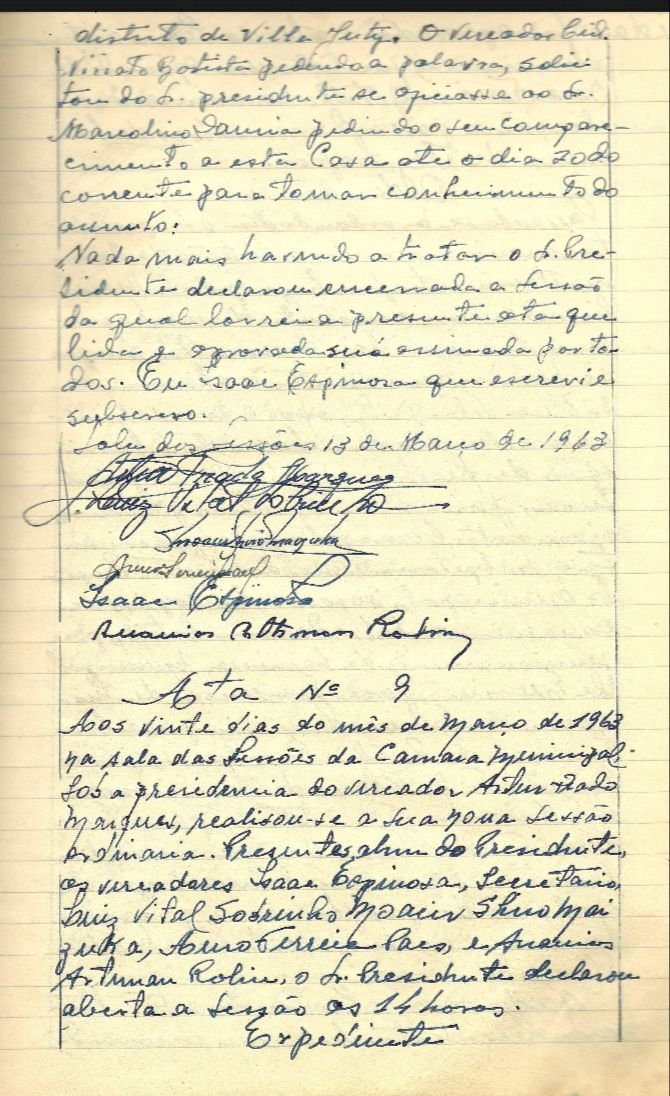 distrito de Villa Juty. O vereador Cid.
Batista pedindo a palavra, solici
tou do Sr. presidente se oficiasse ao Sr.
Marcolino pedindo o seu compare-
cimento a esta Casa até o dia 20 do
corrente para tomar conhecimento do
assunto.
Nada mais havendo a tratar o Sr. Pre-
sidente declarou encerrada a Sessão
da qual lavrei a presente ata que
lida e aprovada será assinada por to-
dos. Eu Isaac Espinosa que escrevi e
subscrevo.
Sala das sessões 13 de Março de 1963
Marques
Luiz Vital Sobrinho
Isaac Espinosa
Ananias
Ata Nº 9
Aos vinte dias do mês de Março de 1963
na sala das Sessões da Camara Municipal.
Sob a presidencia do vereador Artur
Marques, realisou-se a sua nona Sessão
ordinaria. Presentes, alem do Presidente,
os vereadores Isaac Espinosa, Secretario,
Luiz Vital Sobrinho Moacir
Ferreira Paes, e Ananias
o Sr. Presidente declarou
aberta a Sessão as 14 horas.
Expediente